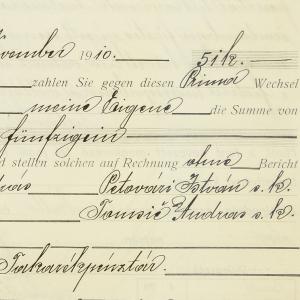 November 1910. 51 k.
zahlen Sie gegen diesen Prima Wechsel
meine Eugene die Summe von
fünfzigein
stellen solchen auf Rechnung ohne Bericht
Petovári István s. k.
Tomsič Andras s. k.
Takarékpénztár.